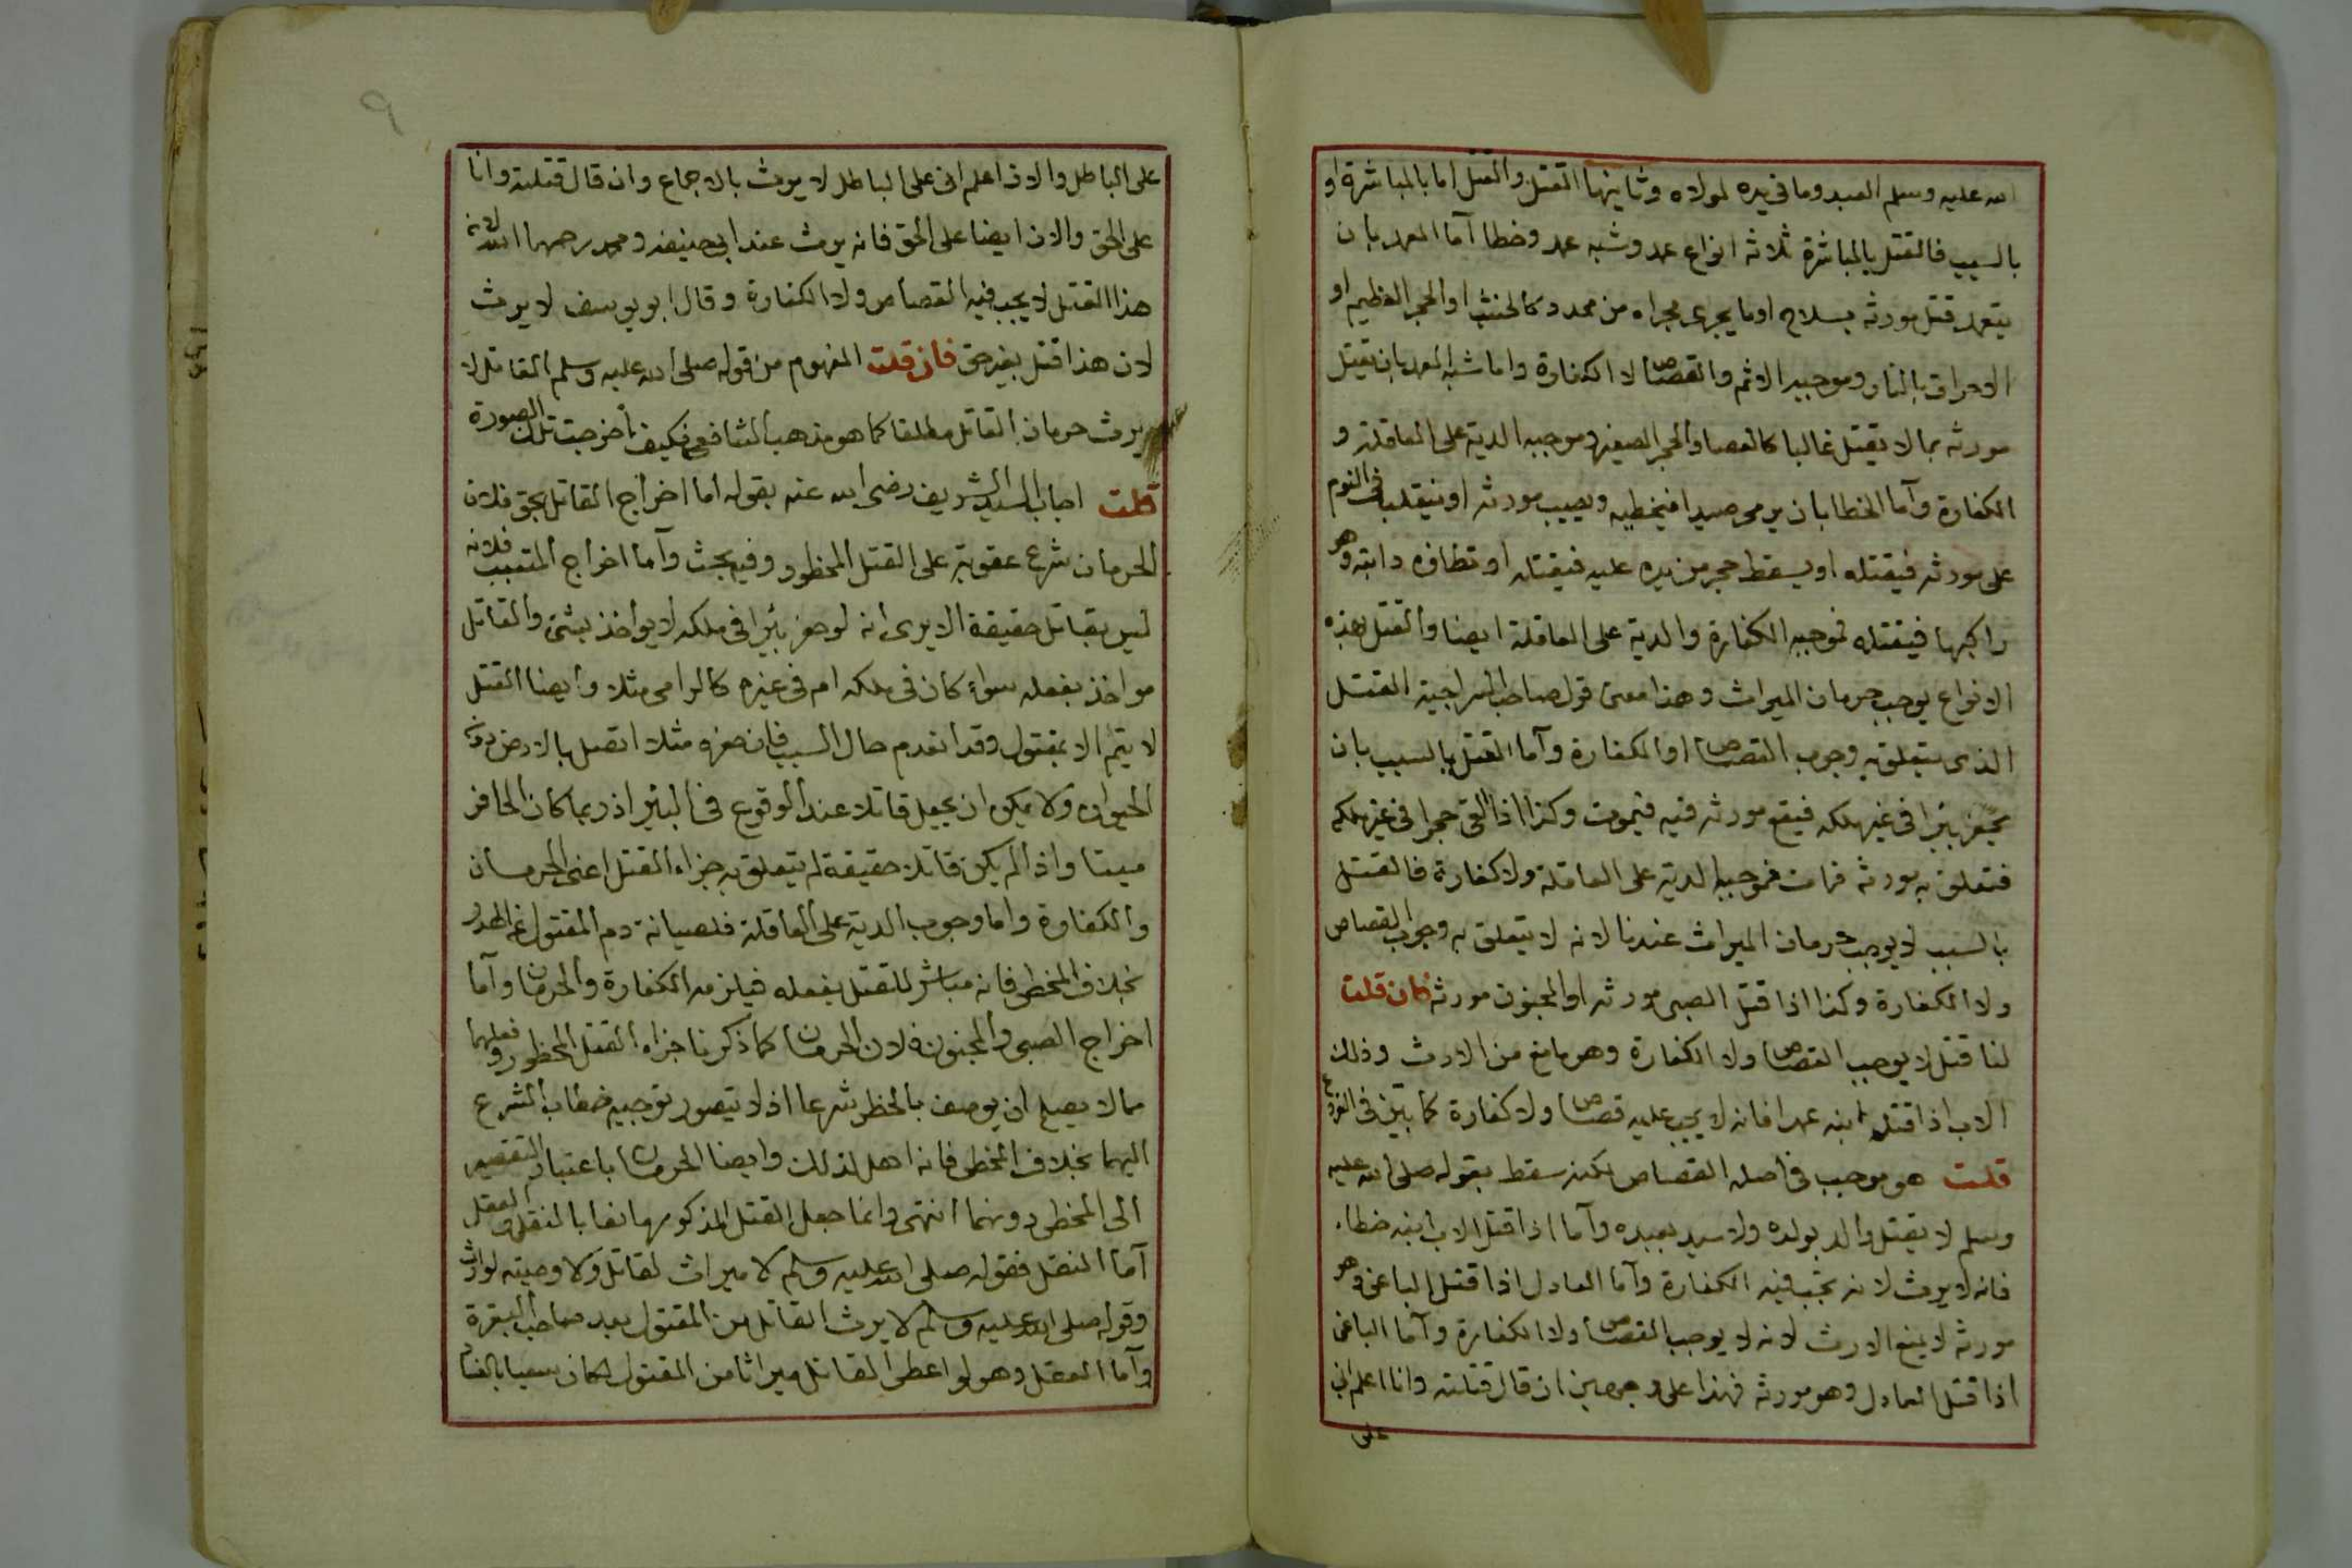 الله عليه وسلم العبد وما في يده لمولاه وثانيها القتل والقتل اما بالمباشرة او
بالسبب فالقتل بالمباشرة ثلاثة انواع عمد وشبه عمد وخطا آما العمد بان
يتعمد قتل مورثه بسلاح او ما يجرى مجراه من محدد كالخشب او الحجر العظيم او
الاحراق بالنار وموجبه الاثم والقصاص لا الكفارة واما شبه العمد بان يقتل
مورثه بما لا يقتل غالبا كالعصا والحجر الصغير وموجبه الدية على العاقلة و
الكفارة وآما الخطا بان يرمى صيدا فيخطيه ويصيب مورثه او ينقلب في النوم
على مورثه فيقتله او يسقط حجر من يده عليه فيقتله او تطاؤه دابته وهو
راكبها فيقتله فموجبه الكفارة والدية على العاقلة ايضا والقتل بهذه
الانواع يوجب حرمان الميراث وهذا معنى قول صاحب السراجية القتل
الذى يتعلق به وجوب القصاص او الكفارة وآما القتل بالسبب بان
يحفر بئرا في غير ملكه فيقع مورثه فيه فيموت وكذا اذا القى حجرا في غير ملكه
فتعلق به مورثه فمات فموجبه الدية على العاقلة ولا كفارة فالقتل
بالسبب لا يوجب حرمان الميراث عندنا لانه لا يتعلق به وجوب القصاص
ولا الكفارة وكذا اذا قتل الصبى مورثه او المجنون مورثه فان قلت
لنا قتل لا يوجب القصاص ولا الكفارة وهو مانع من الارث وذلك
الاب اذا قتل ابنه عمدا فانه لا يجب عليه قصاص ولا كفارة كما بيّن في
قلت هو موجب في اصله القصاص لكنه سقط بقوله صلى الله عليه
وسلم لا يقتل والد بولده ولا سيد بعبده وآما اذا قتل الاب ابنه خطاء
فانه لا يرث لانه تجب فيه الكفارة وآما العادل اذا قتل الباغى وهو
مورثه لا يمنع الارث لانه لا يوجب القصاص ولا الكفارة وآما الباغى
اذا قتل العادل وهو مورثه فهذا على وجهين ان قال قتلته وانا اعلم انى
على
٩
على الباطل والان اعلم انى على الباطل لا يرث بالاجماع وان قال قتلته وانا
على الحق والان ايضا على الحق فانه يرث عند ابى حنيفة ومحمد رحمهما الله لان
هذا القتل لا يجب فيه القصاص ولا الكفارة وقال ابو يوسف لا يرث
لان هذا قتل بغير حق فان قلت المفهوم من قوله صلى الله عليه وسلم القاتل لا
يرث حرمان القاتل مطلقا كما هو مذهب الشافعى فكيف اخرجت تلك الصورة
قلت اجاب السيد الشريف رضى الله عنه بقوله اما اخراج القاتل بحق فلان
الحرمان شرع عقوبة على القتل المحظور وفيه بحث وآما اخراج المتسبب فلانه
ليس بقاتل حقيقة الا يرى انه لو حفر بئرا في ملكه لا يواخذ بشئ والقاتل
مواخذ بفعله سواء كان في ملكه ام في غيره كالرامى مثلا وايضا القتل
لا يتم الا بمقتول وقد انعدم حال السبب فان حفره مثلا اتصل بالارض دون
الحيوان ولا يمكن ان يجعل قاتلا عند الوقوع في البئر اذ ربما كان الحافر
ميتا واذا لم يكن قاتلا حقيقة لم يتعلق به جزاء القتل اعنى الحرمان
والكفارة واما وجوب الدية على العاقلة فلصيانة دم المقتول عن الهدر
بخلاف المخطى فانه مباشر للقتل بفعله فيلزمه الكفارة والحرمان وآما
اخراج الصبى والمجنون فلان الحرمان كما ذكرنا جزاء القتل المحظور وفعلهما
مما لا يصلح ان يوصف بالحظر شرعا اذ لا يتصور توجيه خطاب الشرع
اليهما بخلاف المخطى فانه اهل لذلك وايضا الحرمان باعتبار التقصير
الى المخطى دونهما انتهى وانما جعل القتل المذكور مانعا بالنقل والعقل
آما النقل فقوله صلى الله عليه وسلم لا ميراث لقاتل ولا وصية لوارث
وقوله صلى الله عليه وسلم لا يرث القاتل من المقتول بعد صاحب البقرة
وآما العقل وهو لو اعطى القاتل ميراثا من المقتول لكان سعيا بالفساد